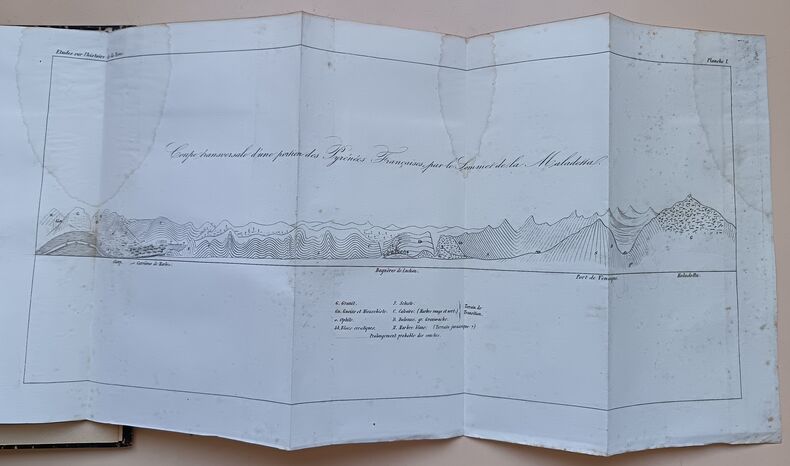 Etudes sur l'histoire de la Terre
Planche I.
Coupe transversale d'une portion des Pyrénées Françaises, par le Sommet de la Maladetta.
Carrières de Marbre
Bagnères de Luchon
Port de Venasque
Maladetta
G. Granit. S. Schiste.
Gn. Gneiss et Micaschiste. C. Calcaire. (Marbre rouge et vert.) Terrain de
o. Ophite. Grauwacke. Transition.
bb. Blocs erratiques. M. Marbre blanc. (Terrain jurassique ?)
Prolongement probable des couches.